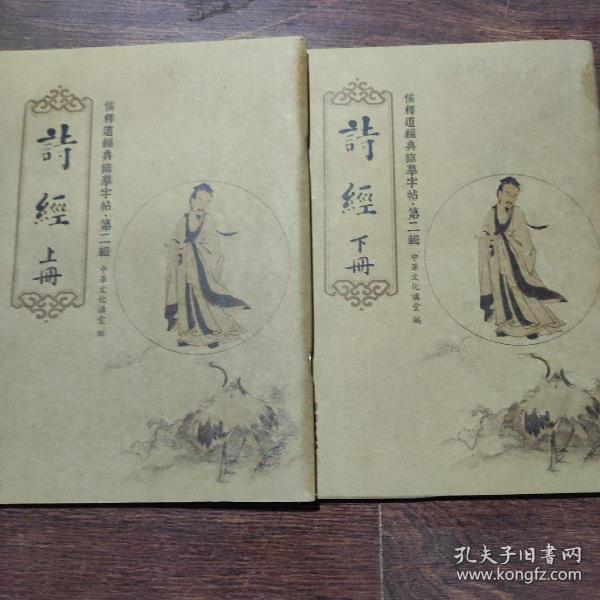 詩經 上冊
儒釋道經典臨摹字帖·第二輯
中華文化講堂 編
詩經 下冊
儒釋道經典臨摹字帖·第二輯
中華文化講堂 編
孔夫子旧书网
www.kongfz.com